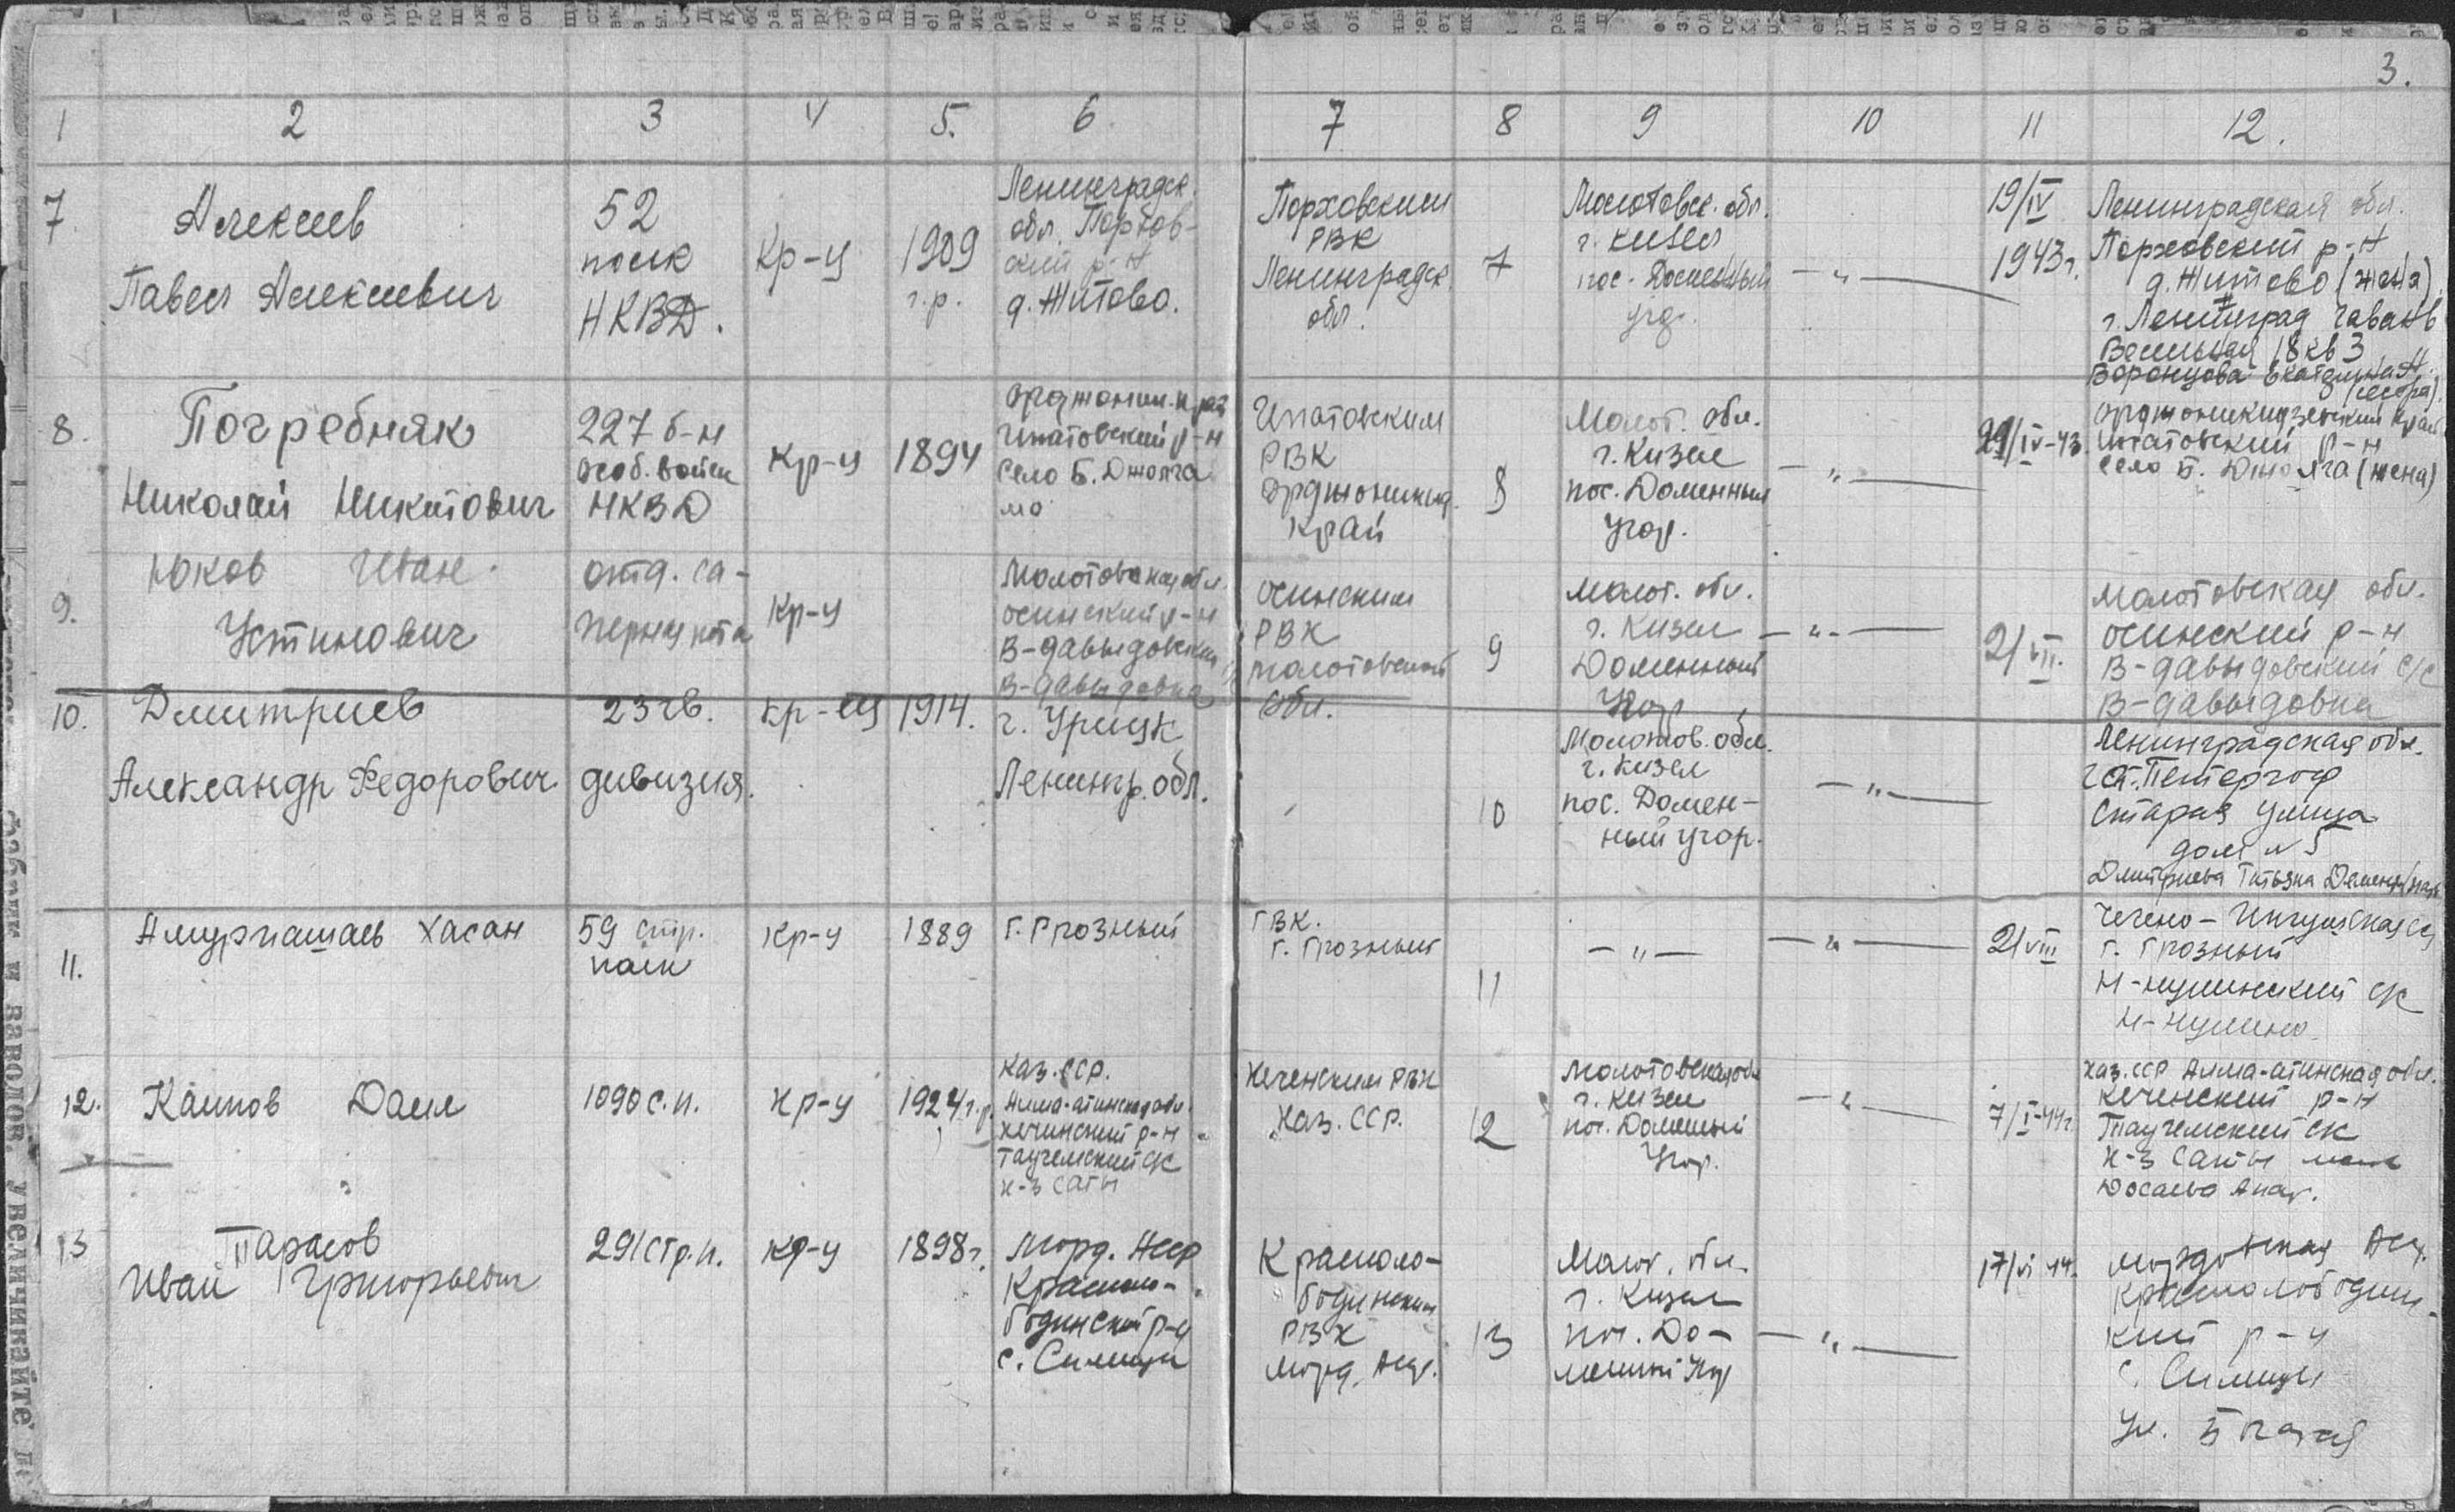 3.
1 2 3 4 5. 6 7 8 9 10 11 12.
7.
Алексеев
Павел Алексеевич
52
полк
НКВД.
Кр-ц
1909
г.р.
Ленинградск.
обл. Порхов-
ский р-н
д. Житово.
Порховским
РВК
Ленинградск.
обл.
7
Молотовск. обл.
г. Кизел
пос. Доменный
угор.
— " —
19/IV
1943 г.
Ленинградская обл.
Порховский р-н
д. Житово (жена)
г. Ленинград
18 кв 3
Воронцова Екатерина Н.
(сестра).
8.
Погребняк
Николай Никитович
227 б-н
особ. войск
НКВД
Кр-ц
1894
Орджоник. край
Ипатовский р-н
село Б. Джалга
Ипатовским
РВК
Орджоникид.
край
8
Молот. обл.
г. Кизел
пос. Доменный
угор.
— " —
29/IV-43.
Орджоникидзевский край
Ипатовский р-н
село Б. Джалга (жена)
9.
Юков Иван
Устинович
отд. са-
Кр-ц
Молотовская обл.
Осинский р-н
В-Давыдовский
В-Давыдовка
Осинским
РВК
Молотовской
обл.
9
Молот. обл.
г. Кизел
Доменный
Угор.
— " —
2/VII.
Молотовская обл.
Осинский р-н
В-Давыдовский с/с
В-Давыдовка
10.
Дмитриев
Александр Федорович
23 гв.
дивизия.
кр-ец
1914.
г. Урицк
Ленингр. обл.
10
Молотов. обл.
г. Кизел
пос. Домен-
ный угор.
— " —
Ленинградская обл.
Ст. Петергоф
Старая улица
дом № 5
Дмитриева Татьяна
11.
Хасан
59 стр.
полк
Кр-ц
1889
г. Грозный
ГВК.
г. Грозный
11
— " —
— " —
2/VIII
Чечено-Ингушская
г. Грозный
с/с
12.
Каипов Даил
1090 с.п.
кр-ц
1924 г.р.
Каз. ССР.
Алма-атинская обл.
Кегенский р-н
с/с
к-з Саты
Кегенским РВК
Каз. ССР.
12
Молотовская обл.
г. Кизел
пос. Доменный
Угор.
— " —
7/I-44 г.
Каз. ССР Алма-атинская обл.
Кегенский р-н
с/с
к-з Саты
13
Тарасов
Иван Григорьевич
291 стр. п.
кр-ц
1898 г.
Морд. Асср
Краснсло-
бодинский р-н
с.
Краснсло-
бодинским
РВК
Морд. Асср.
13
Молот. обл.
г. Кизел
пос. До-
менный Угор
— " —
17/VI 44.
Мордовская Асср.
Краснослободин-
ский р-н
с.
ул.